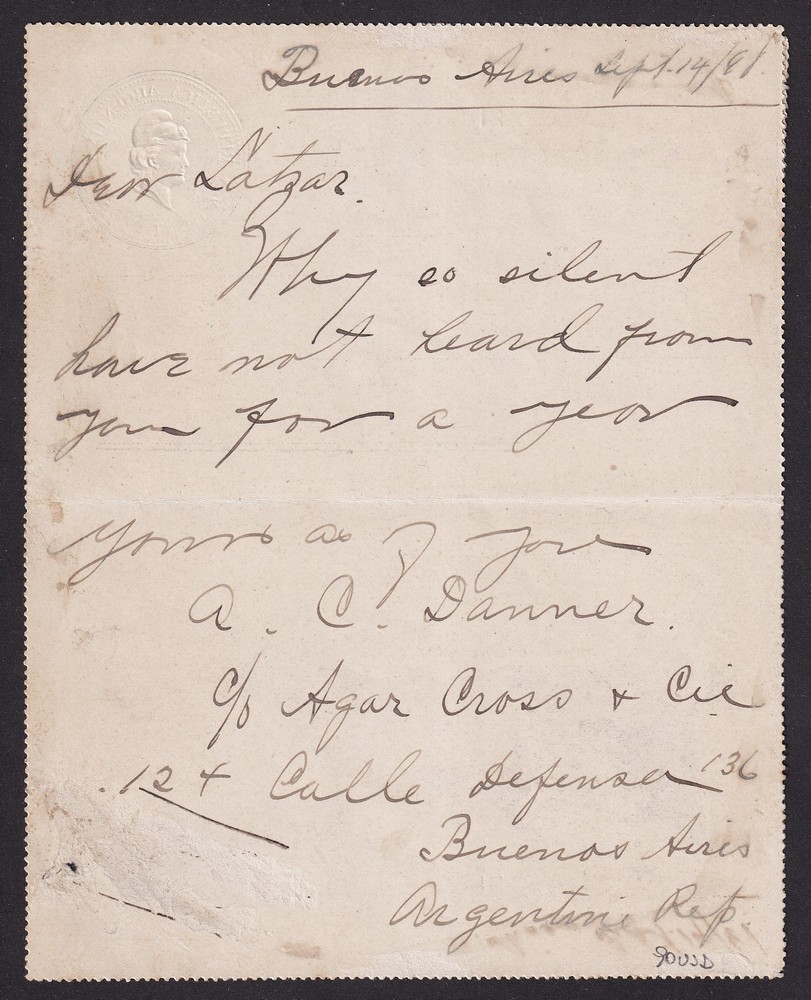 Buenos Aires Sept. 14/91.
Dear Látzar.
Why so silent
have not heard from
you for a year
Yours as of yore
A. C. Danner.
c/o Agar Cross & Cie
124 Calle Defensa 136
Buenos Aires
Argentine Rep.
90USD